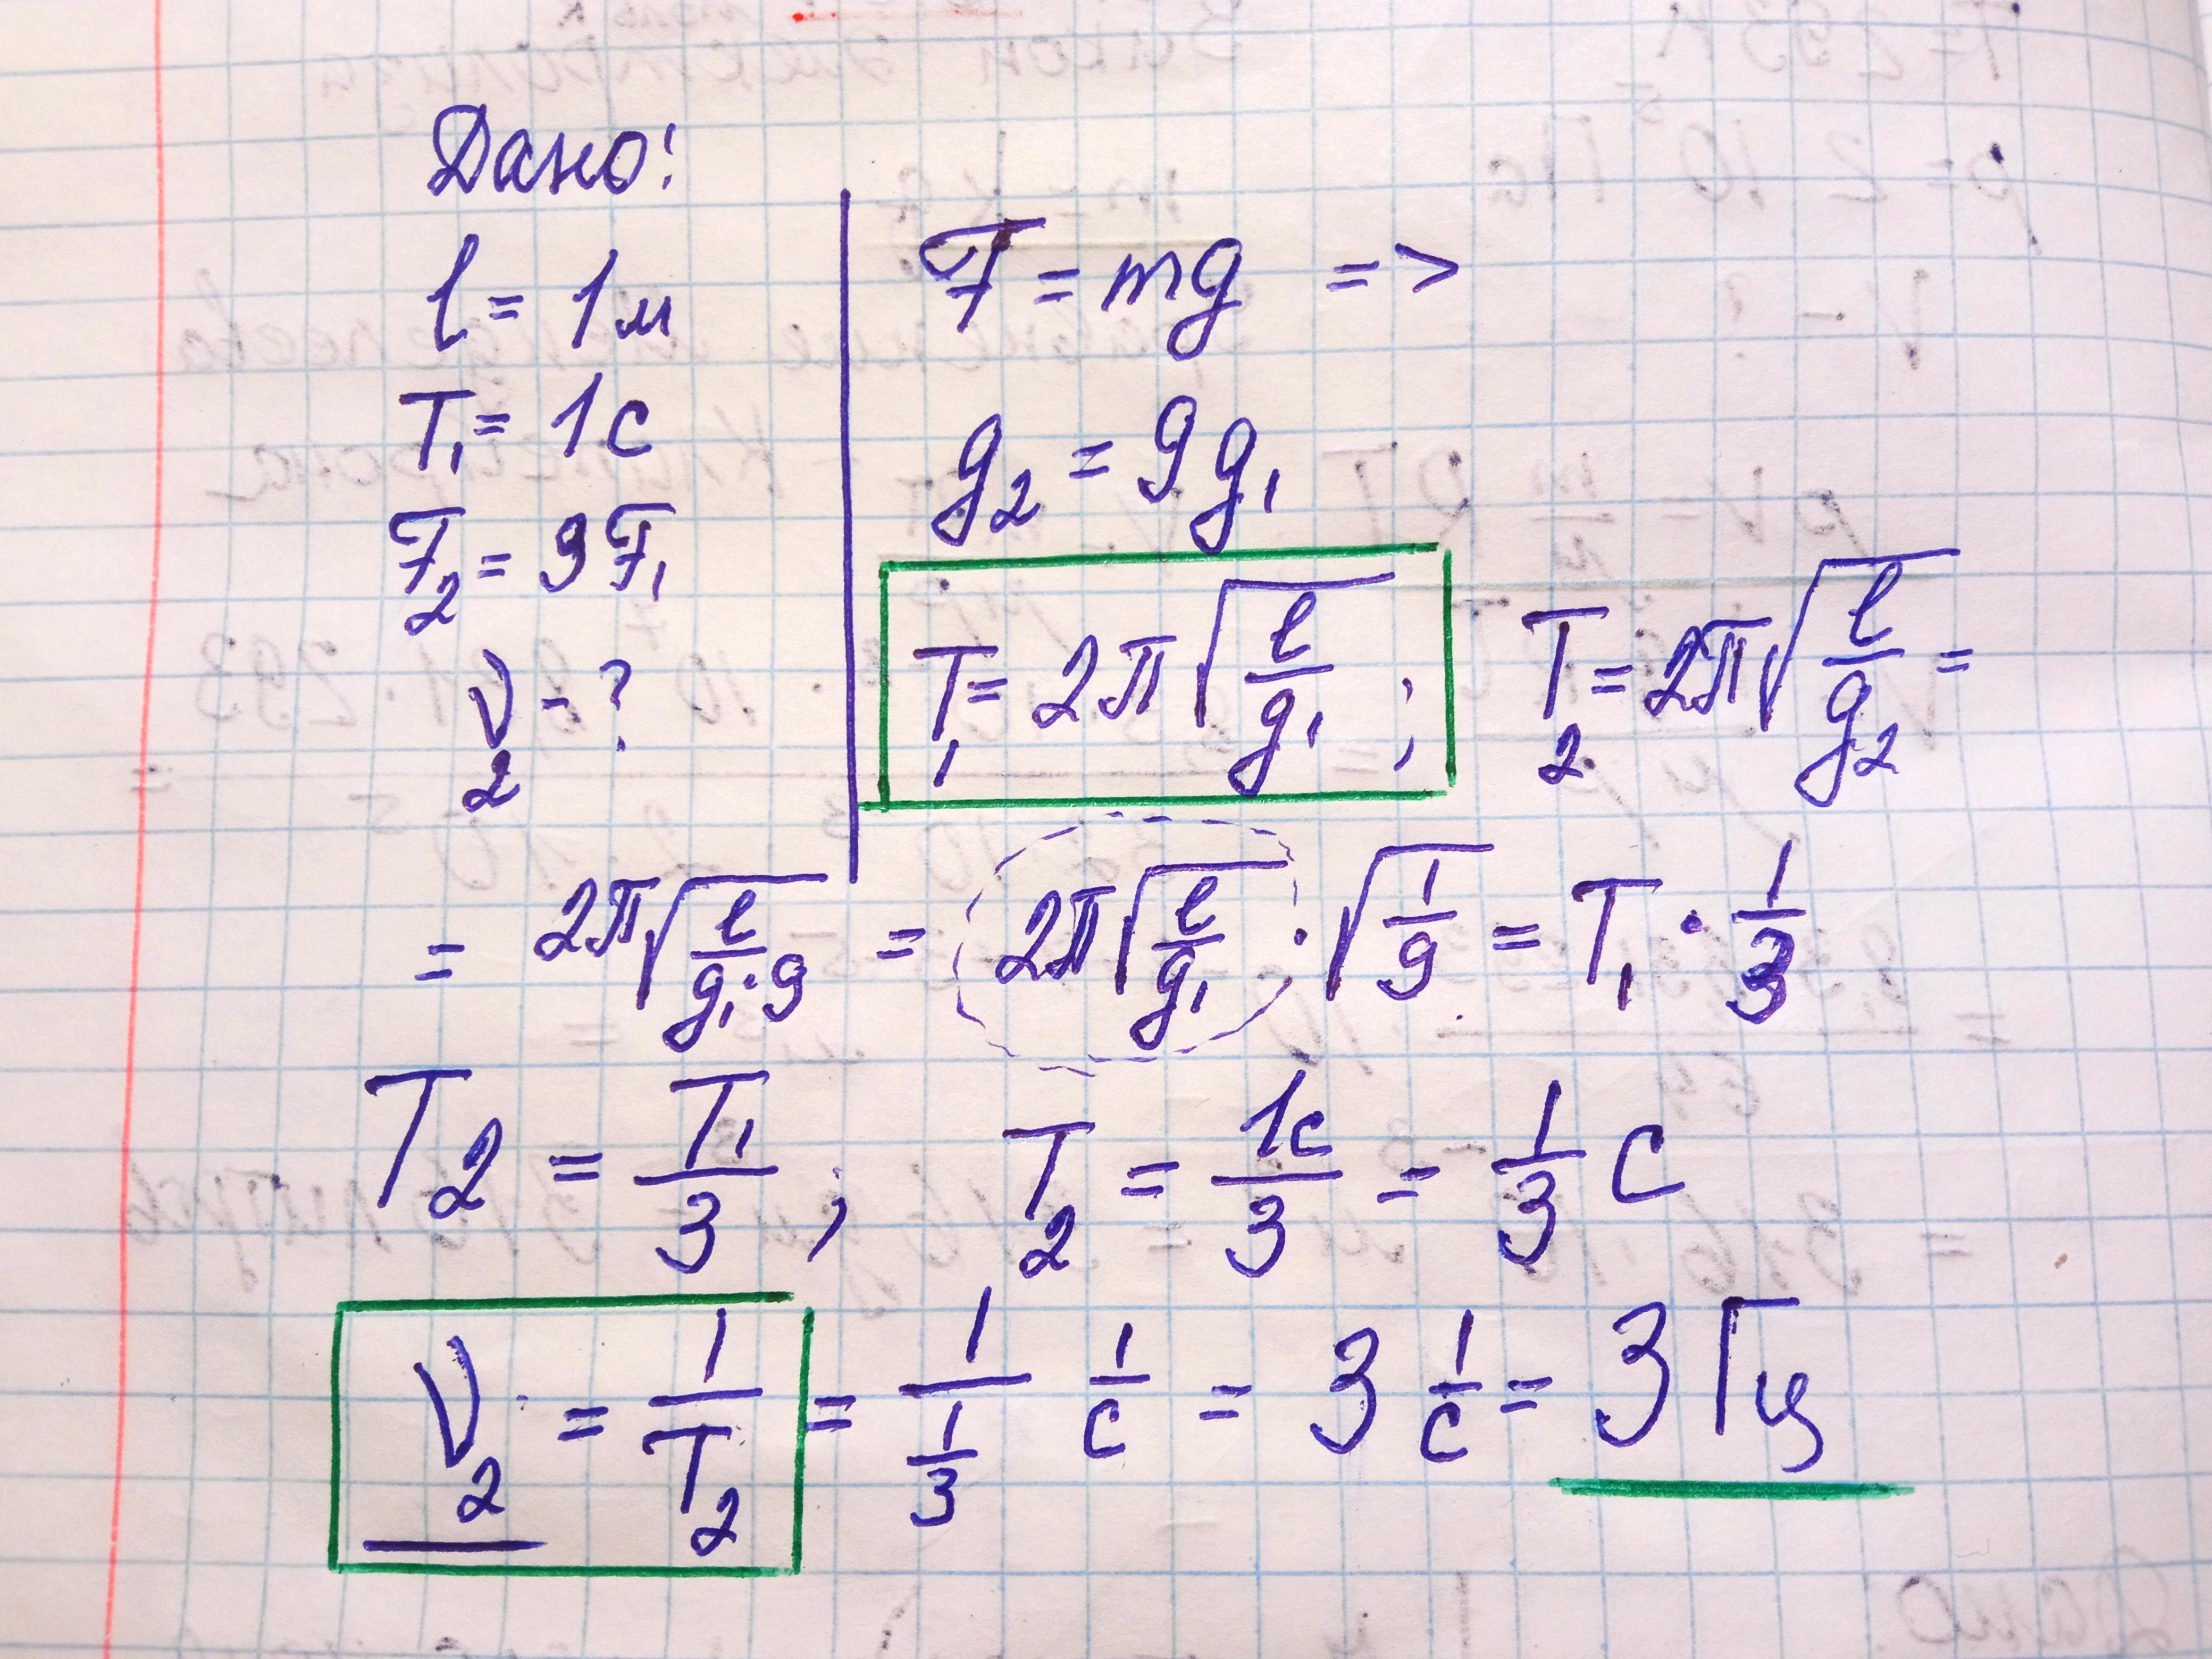 Дано:
l = 1м
T₁ = 1с
F₂ = 9F₁
ν₂ - ?
F = mg =>
g₂ = 9g₁
T₁ = 2π√(l/g₁) ; T₂ = 2π√(l/g₂) =
= 2π√(l/(g₁·9)) = 2π√(l/g₁) · √(1/9) = T₁ · 1/3
T₂ = T₁/3 ; T₂ = 1с/3 = 1/3 с
ν₂ = 1/T₂ = 1/(1/3) 1/с = 3 1/с = 3 Гц